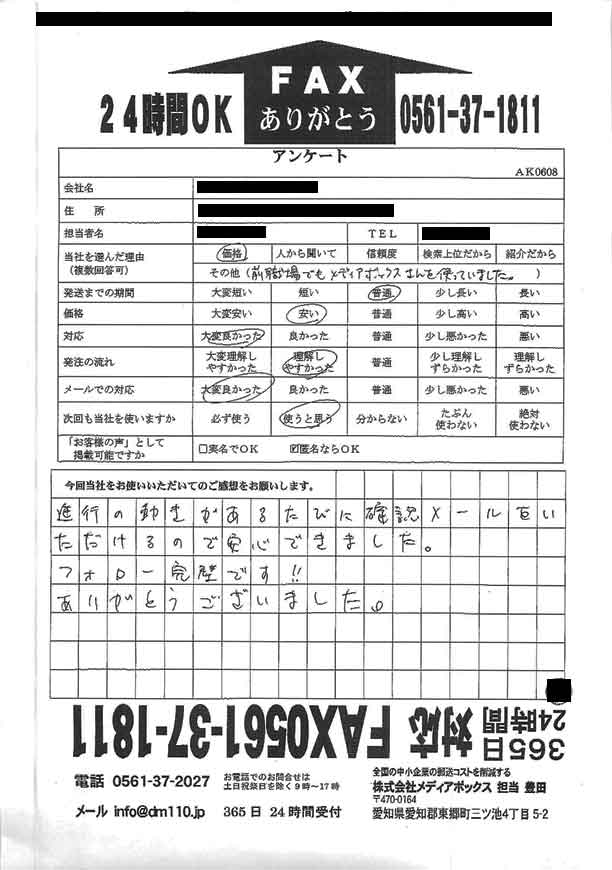 FAX
ありがとう
24時間OK
0561-37-1811
アンケート
AK0608
会社名
住 所
担当者名 TEL
当社を選んだ理由(複数回答可) 価格 人から聞いて 信頼度 検索上位だから 紹介だから
その他(前職場でもメディアボックスさんを使っていました。)
発送までの期間 大変短い 短い 普通 少し長い 長い
価格 大変安い 安い 普通 少し高い 高い
対応 大変良かった 良かった 普通 少し悪かった 悪い
発注の流れ 大変理解しやすかった 理解しやすかった 普通 少し理解しずらかった 理解しずらかった
メールでの対応 大変良かった 良かった 普通 少し悪かった 悪い
次回も当社を使いますか 必ず使う 使うと思う 分からない たぶん使わない 絶対使わない
「お客様の声」として掲載可能ですか □実名でOK ☑匿名ならOK
今回当社をお使いいただいてのご感想をお願いします。
進行の動きがあるたびに確認メール
ただけるので安心できました。
フォロー完璧です!!
ありがとうございました。
365日24時間対応 FAX0561-37-1811
電話 0561-37-2027
お電話でのお問合せは
土日祝祭日を除く9時~17時
メール info@dm110.jp 365日24時間受付
全国の中小企業の郵送コストを削減する
株式会社メディアボックス 担当 豊田
〒470-0164
愛知県愛知郡東郷町三ツ池4丁目5-2